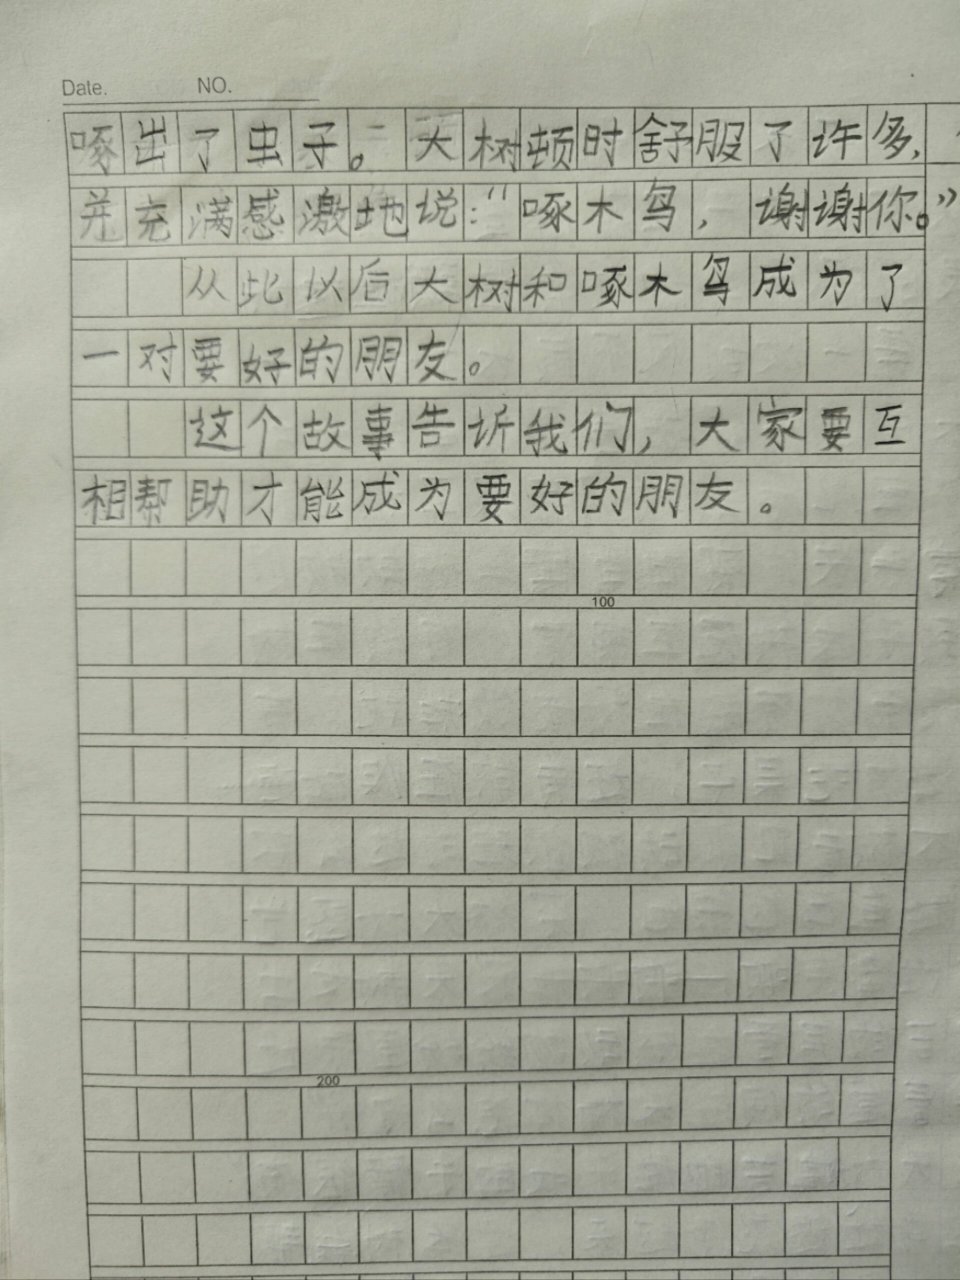 Date. NO.
啄出了虫子。大树顿时舒服了许多,
并充满感激地说:“啄木鸟,谢谢你。”
从此以后大树和啄木鸟成为了
一对要好的朋友。
这个故事告诉我们,大家要互
相帮助才能成为要好的朋友。
100
200